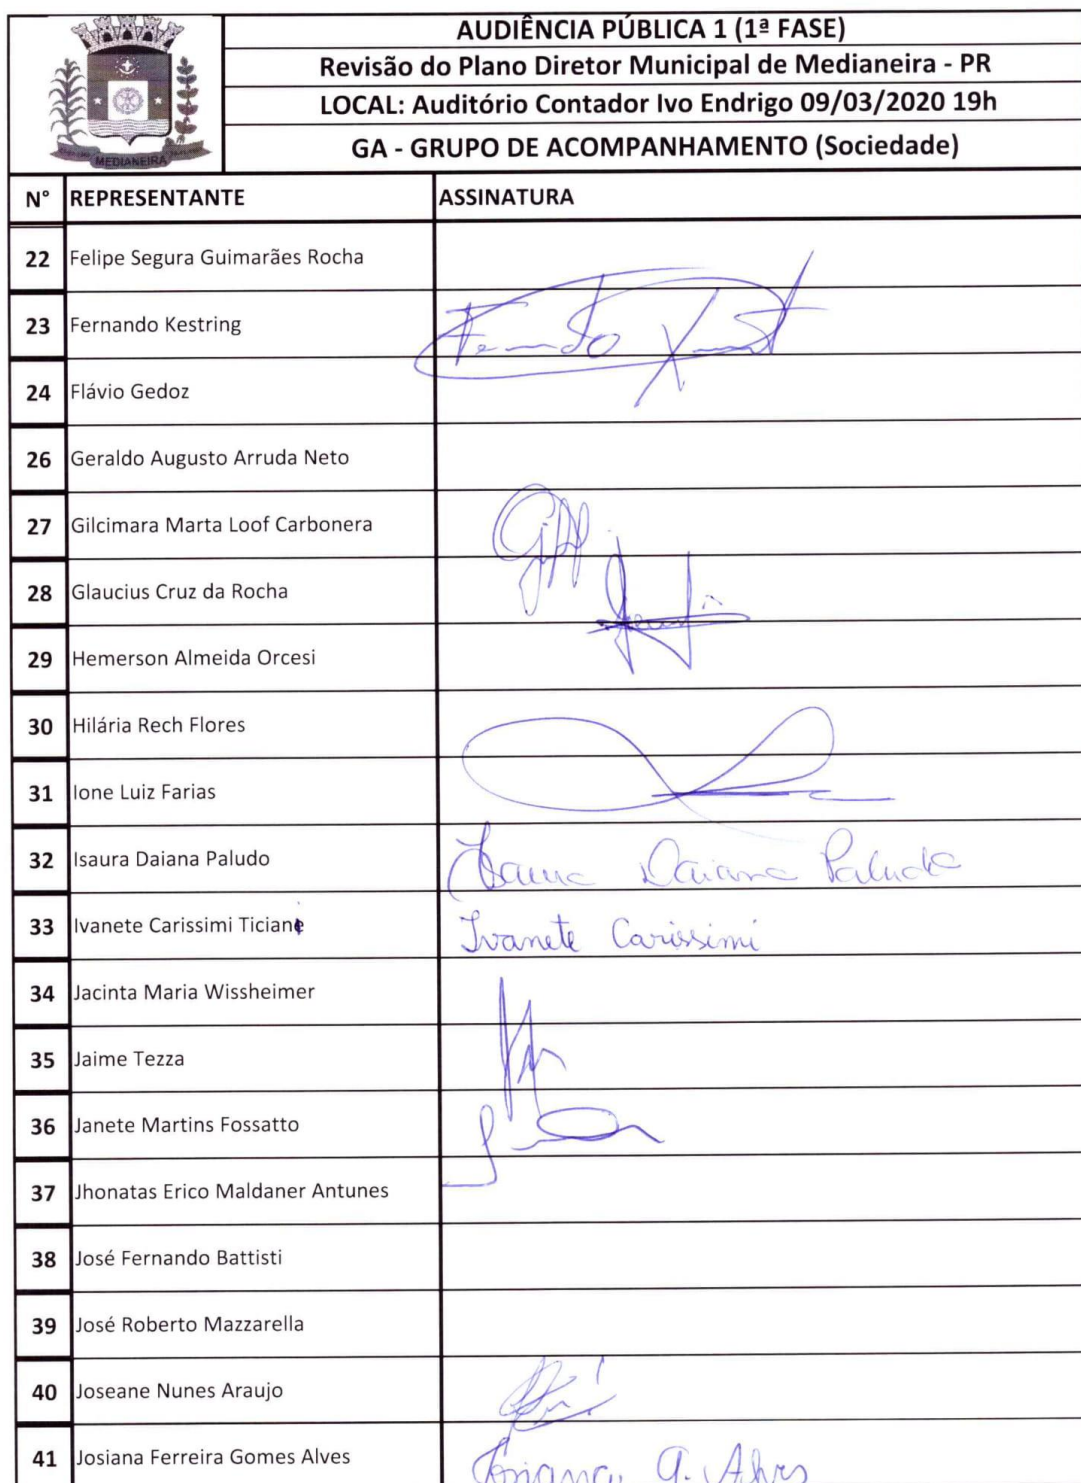 AUDIÊNCIA PÚBLICA 1 (1ª FASE)
Revisão do Plano Diretor Municipal de Medianeira - PR
LOCAL: Auditório Contador Ivo Endrigo 09/03/2020 19h
GA - GRUPO DE ACOMPANHAMENTO (Sociedade)
MEDIANEIRA
N° REPRESENTANTE ASSINATURA
22 Felipe Segura Guimarães Rocha
23 Fernando Kestring
24 Flávio Gedoz
26 Geraldo Augusto Arruda Neto
27 Gilcimara Marta Loof Carbonera
28 Glaucius Cruz da Rocha
29 Hemerson Almeida Orcesi
30 Hilária Rech Flores
31 Ione Luiz Farias
32 Isaura Daiana Paludo Isaura Daiana Paludo
33 Ivanete Carissimi Ticiane Ivanete Carissimi
34 Jacinta Maria Wissheimer
35 Jaime Tezza
36 Janete Martins Fossatto
37 Jhonatas Erico Maldaner Antunes
38 José Fernando Battisti
39 José Roberto Mazzarella
40 Joseane Nunes Araujo
41 Josiana Ferreira Gomes Alves Josiana G. Alves